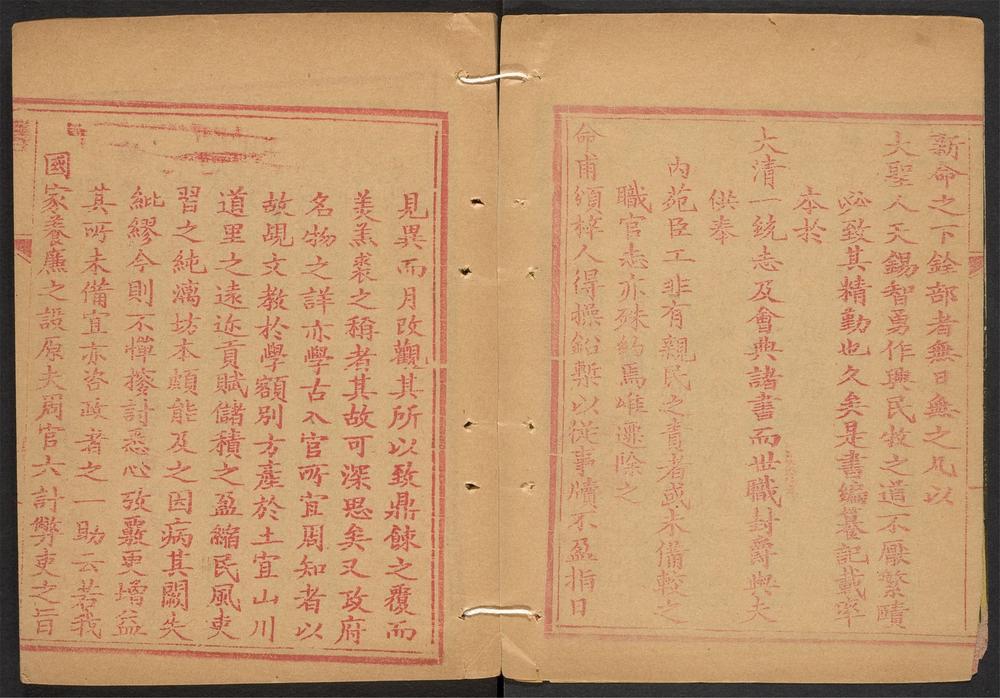 新命之下銓部者無日無之凡以
大聖人天錫智勇作興民牧之道不厭繁賾
必致其精勤也久矣是書編纂記載率
本於
大清一統志及會典諸書而世職封爵與夫
供奉
內苑臣工非有親民之責者或未備較之
職官志亦殊約焉唯遷除之
命甫頒梓人得操鉛槧以從事牘不盈指日
見異而月改觀其所以致鼎餗之覆而
羙羔裘之稱者其故可深思矣又攻府
名物之詳亦學古入官所宜周知者以
故覘文教於學額別方產於土宜山川
道里之遠近貢賦儲積之盈縮民風吏
習之純漓坊本頗能及之因病其闕失
紕繆今則不憚搜討悉心攷覈更增益
其所未備宜亦咨政者之一助云若我
國家養廉之設原夫周官六計弊吏之旨